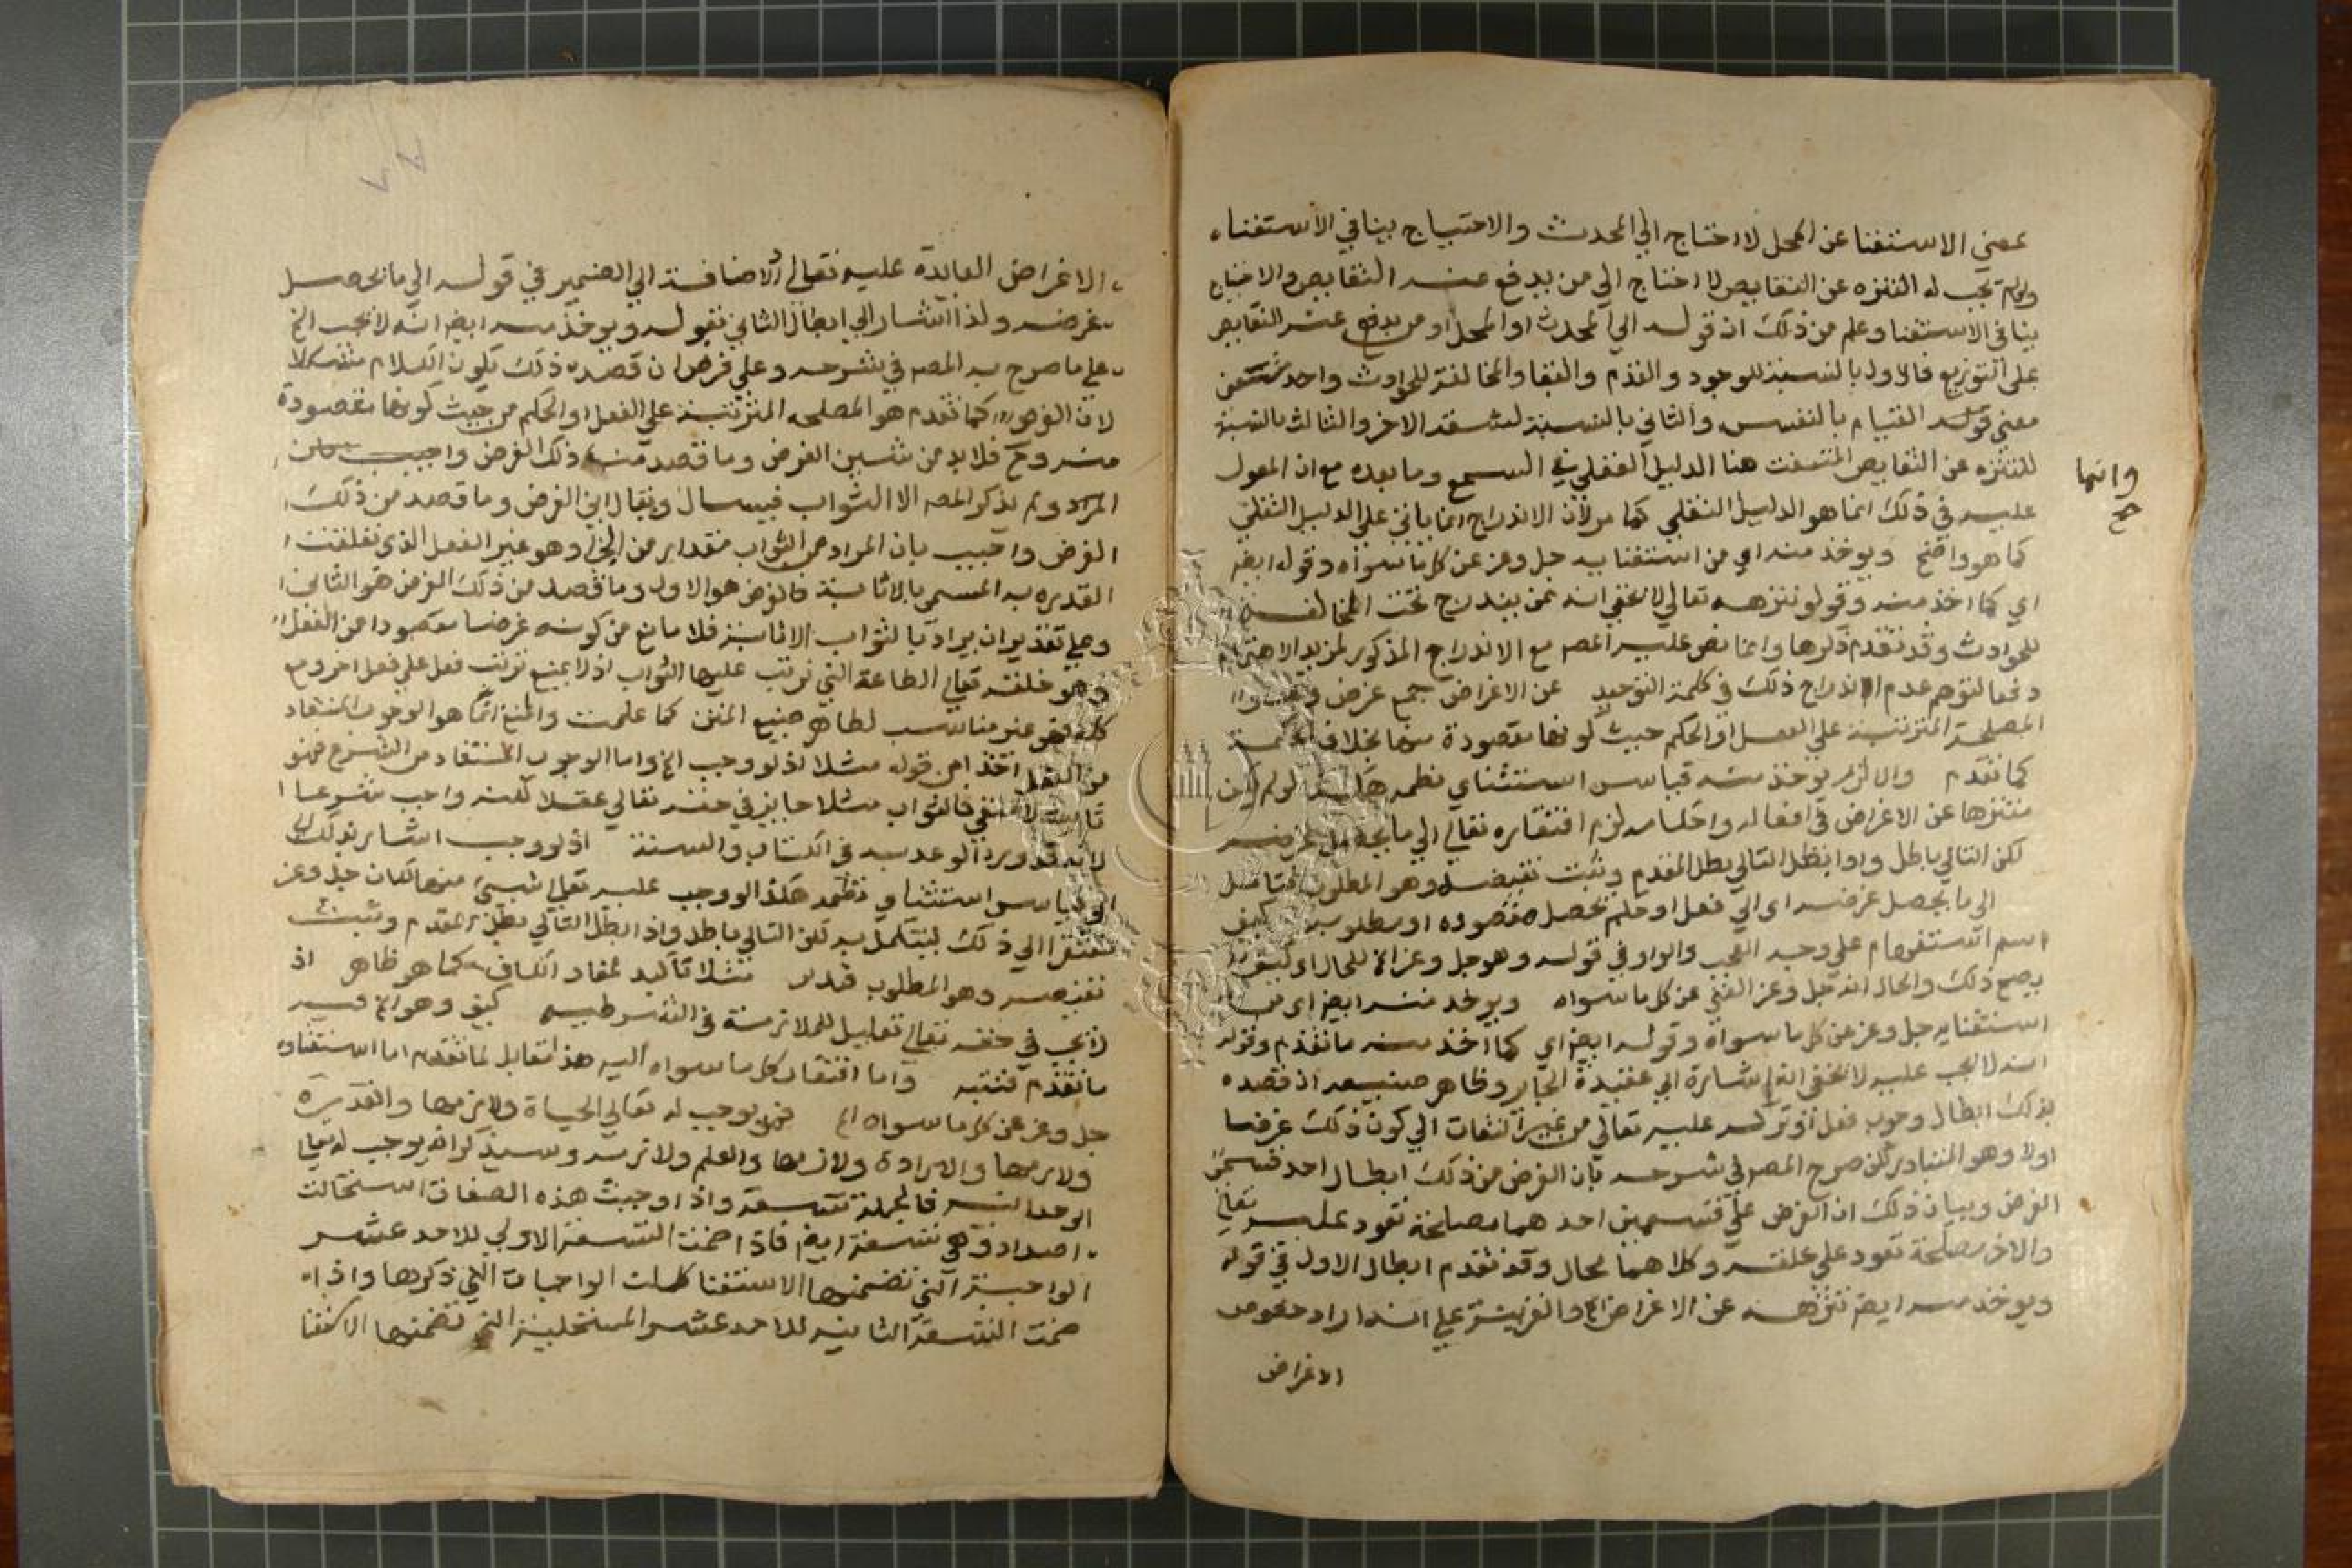 بمعني الاستغنا عن المحل لااحتاج الي المحدث والاحتياج ينافي الاستغناء
ولو لم تجب له التنزه عن النقايص لااحتاج الي من يدفع عنه النقايص والاحتياج
ينافي الاستغنا وعلم من ذلك ان قوله الي المحدث او المحل او من يدفع عنه النقايص
علي التوزيع فالاول بالنسبة للوجود والقدم والبقا والمخالفة للحوادث واحد شقي
معني قوله القيام بالنفس والثاني بالنسبة لشقه الاخر والثالث بالنسبة
للتنزه عن النقايص المتسفت هنا الدليل العقلي في السمع وما بعده مع ان المعول
وانما
صح
عليه في ذلك انما هو الدليل النقلي كما مر لان الاندراج انما ياتي علي الدليل العقلي
كما هو واضح ويوخذ منه اي من استغنايه جل وعز عن كل ما سواه وقوله ايضا
اي كما اخذ منه وقوله تنزهه تعالي لا يخفي انه مما يندرج تحت المخالفة
للحوادث وقد تقدم ذكرها وانما نص عليه المص مع الاندراج المذكور لمزيد الاهتمام
دفعا لتوهم عدم اندراج ذلك في كلمة التوحيد عن الاغراض جمع غرض وهو
المصلحة المترتبة علي الفعل او الحكم حيث كونها مقصودة منها بخلاف الحكمة
كما تقدم والا لزم يوخذ منه قياس استثناي نظمه هكذا لو لم يكن
متنزها عن الاغراض في افعاله واحكامه لزم افتقاره تعالي الي ما يحصل غرضه
لكن التالي باطل واذا بطل التالي بطل المقدم وثبت نقيضه وهو المطلوب فتامل
الي ما يحصل غرضه اي الي فعل او حكم يحصل مقصوده او مطلوبه كيف
اسم استفهام علي وجه التعجب والواو في قوله وهو جل وعز الخ للحال اي كيف
يصح ذلك والحال انه جل وعز الغني عن كل ما سواه ويوخذ منه ايضا اي من
استغنايه جل وعز عن كل ما سواه وقوله ايضا اي كما اخذ منه ما تقدم وقوله
انه لا يجب عليه لا يخفي انه اشارة الي عقيدة الجايز وظاهر صنيعه ان قصده
بذلك ابطال وجوب فعل او تركه عليه تعالي من غير التفات الي كون ذلك غرضا
اولا وهو المتبادر لكن صرح المص في شرحه بان الغرض من ذلك ابطال احد قسمي
الغرض وبيان ذلك ان الغرض علي قسمين احدهما مصلحة تعود عليه تعالي
والاخر مصلحة تعود علي خلقه وكلاهما محال وقد تقدم ابطال الاول في قوله
ويوخذ منه ايضا تنزهه عن الاغراض الخ والقرينة علي انه اراد خصوص
الاغراض
الاغراض العايدة عليه تعالي الاضافة الي الضمير في قوله الي ما يحصل
غرضه ولذا اشار الي ابطال الثاني بقوله ويوخذ منه ايضا انه لا يجب الخ
علي ما صرح به المص في شرحه وعلي فرض ان قصده ذلك يكون الكلام مشكلا
لان الغرض كما تقدم هو المصلحة المترتبة علي الفعل او الحكم من حيث كونها مقصودة
منه وح فلابد من شيين الغرض وما قصد منه ذلك الغرض واجيب بان
المراد ولم يذكر المص الا الثواب فيسال ويقال اين الغرض وما قصد من ذلك
الغرض واجيب بان المراد من الثواب مقدار من الجزا وهو غير الفعل الذي تعلقت
القدرة به المسمي بالاثابة فالغرض هو الاول وما قصد من ذلك الغرض هو الثاني
وعلي تقدير ان يراد بالثواب الاثابة فلا مانع من كونه غرضا مقصودا من الفعل
وهو خلقه تعالي الطاعة التي ترتب عليها الثواب اذ لا يمتنع ترتب فعل علي فعل اخر ومع
كله فهو غير مناسب لظاهر صنيع المتن كما علمت والمنفي انما هو الوجوب المستفاد
من العقل اخذا من قوله مثلا اذ لو وجب الخ واما الوجوب المستفاد من الشرع فهو
ثابت لا منفي فالثواب مثلا جايز في حقه تعالي عقلا لكنه واجب شرعا
لانه قد ورد الوعد به في الكتاب والسنة اذ لو وجب اشار بذلك
الي قياس استثناي نظمه هكذا لو وجب عليه تعالي شيي منها لكان جل وعز
مفتقرا الي ذلك ليتكمل به لكن التالي باطل واذا بطل التالي بطل المقدم وثبت
نقيضه وهو المطلوب فتدبر مثلا تاكيد لمفاد الكاف كما هو ظاهر اذ
لا يجب في حقه تعالي تعليل للملازمة في الشرطية كيف وهو الخ فيه
ما تقدم فتنبه واما افتقار كل ما سواه اليه هذا مقابل لما تقدم اما استغناوه
جل وعز عن كل ما سواه الخ فهو يوجب له تعالي الحياة ولازمها والقدرة
ولازمها والارادة ولازمها والعلم ولازمه وسيذكر انه يوجب له تعالي
الوحدانية فالجملة تسعة واذا وجبت هذه الصفات استحالت
اضدادها وهي تسعة ايضا فاذا ضمت التسعة الاولي للاحد عشر
الواجبة التي تضمنها الاستغنا كملت الواجبات التي ذكرها واذا
ضمت التسعة الثانية للاحد عشر المستحيلة التي تضمنها الاستغنا